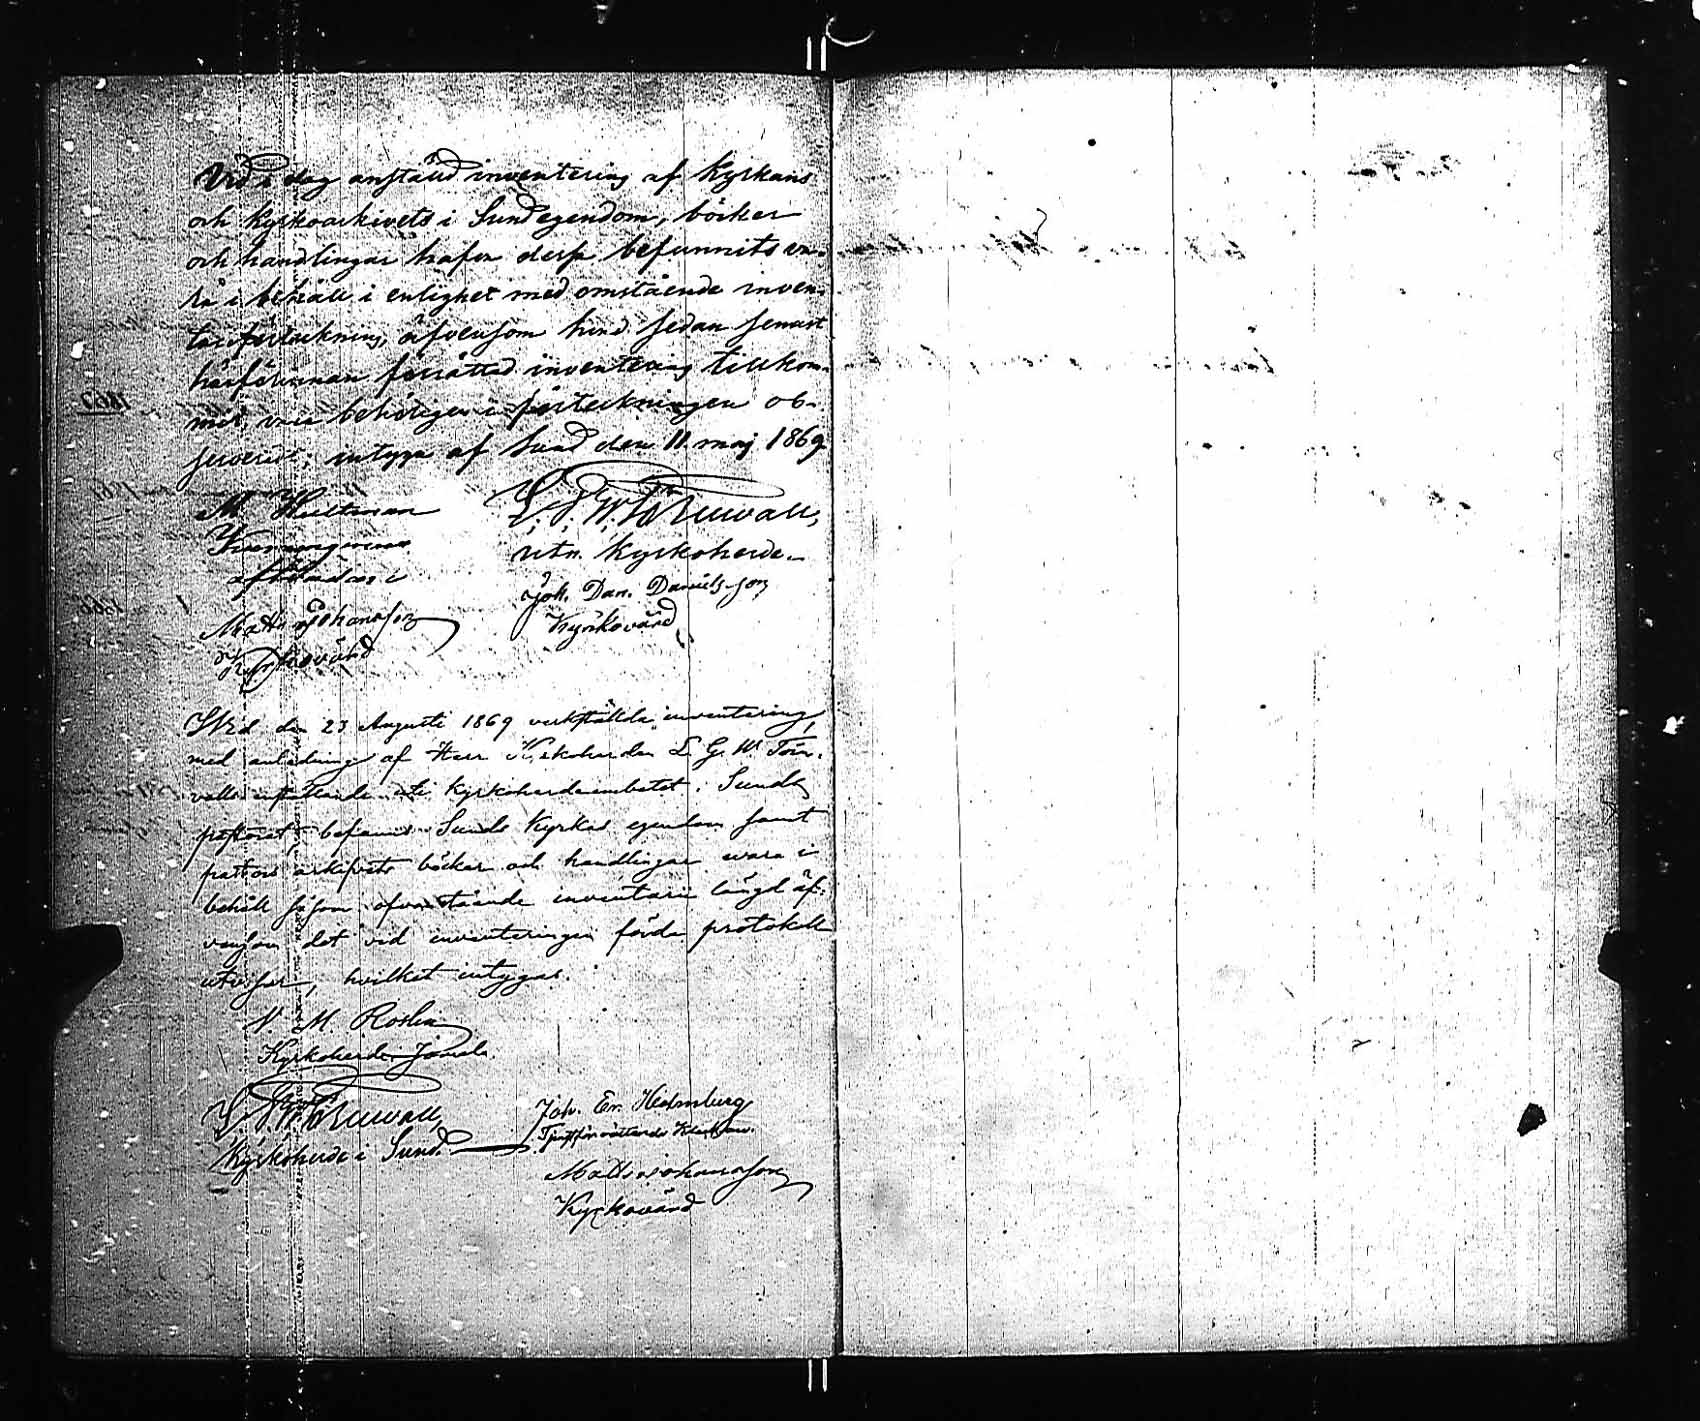 Vid i dag anstäld inventering af Kyrkans
och Kyrkoarkivets i Sund egendom, böcker
och handlingar hafva desse befunnits va-
ra i behåll i enlighet med omstående inven-
tarieförteckning, äfvensom hvad sedan senast
härförinnan förrättad inventering tillkom-
mit, vara behörigen i förteckningen ob-
serverad; intyga af Sund den 11 maj 1869
M Hultman
L. G. W. Törnvall,
utn. Kyrkoherde.
Joh. Dan. Danielsson
Kyrkovärd
Matts Johansson
Kyrkovärd
Wid den 23 Augusti 1869 verkstälda inventering,
med anledning af Herr Kyrkoherden L. G. W. Törn-
valls inträde uti kyrkoherdeembetet i Sunds
pastorat, befanns Sunds Kyrkas egendom samt
pastors arkivets böcker och handlingar wara i
behåll såsom ofvanstående inventarii längd äf-
vensom det vid inventeringen förda protokoll
utvisar, hvilket intygas.
N. M Rosen
Kyrkoherde i Jomala.
L. G. W. Törnvall,
Kyrkoherde i Sund.
Joh. Er. Holmberg
Tjenstförrättande Klockare.
Matts Johansson
Kyrkovärd